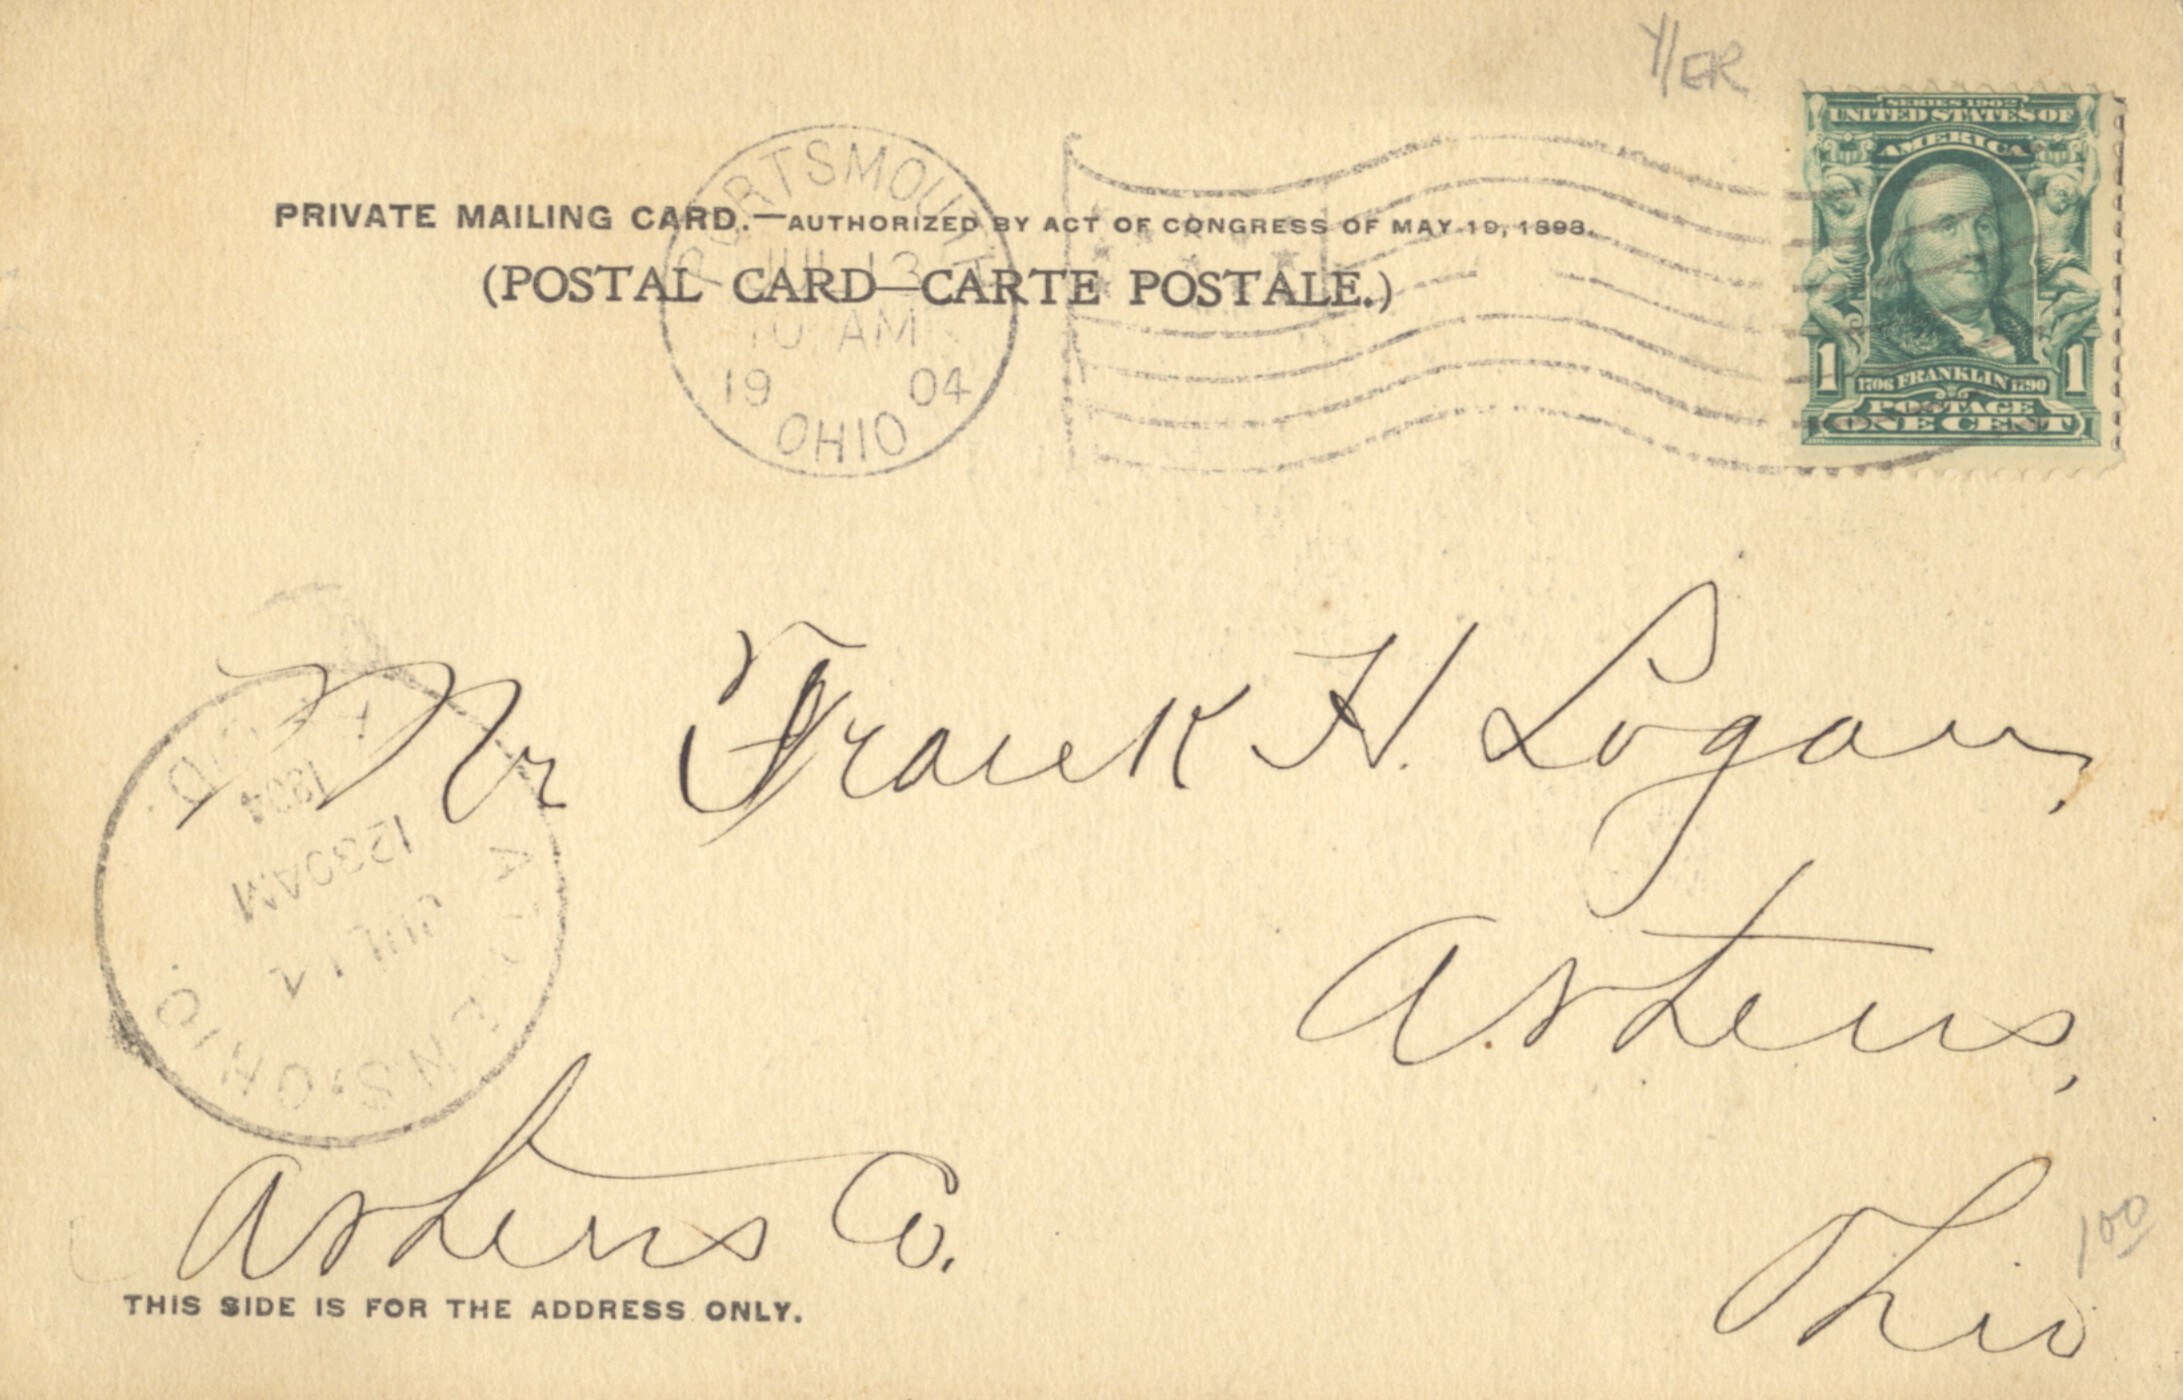 Y/ER
SERIES 1902
UNITED STATES OF
AMERICA
1 1
1706 FRANKLIN 1790
POSTAGE
ONE CENT
PORTSMOUTH
JUL 13
10 AM
19 04
OHIO
PRIVATE MAILING CARD.—AUTHORIZED BY ACT OF CONGRESS OF MAY 19, 1898.
(POSTAL CARD—CARTE POSTALE.)
Mr Frank H. Logan,
Athens,
Athens Co.
Ohio
ATHENS, OHIO.
JUL 14
1230AM
1904
REC'D.
100
THIS SIDE IS FOR THE ADDRESS ONLY.